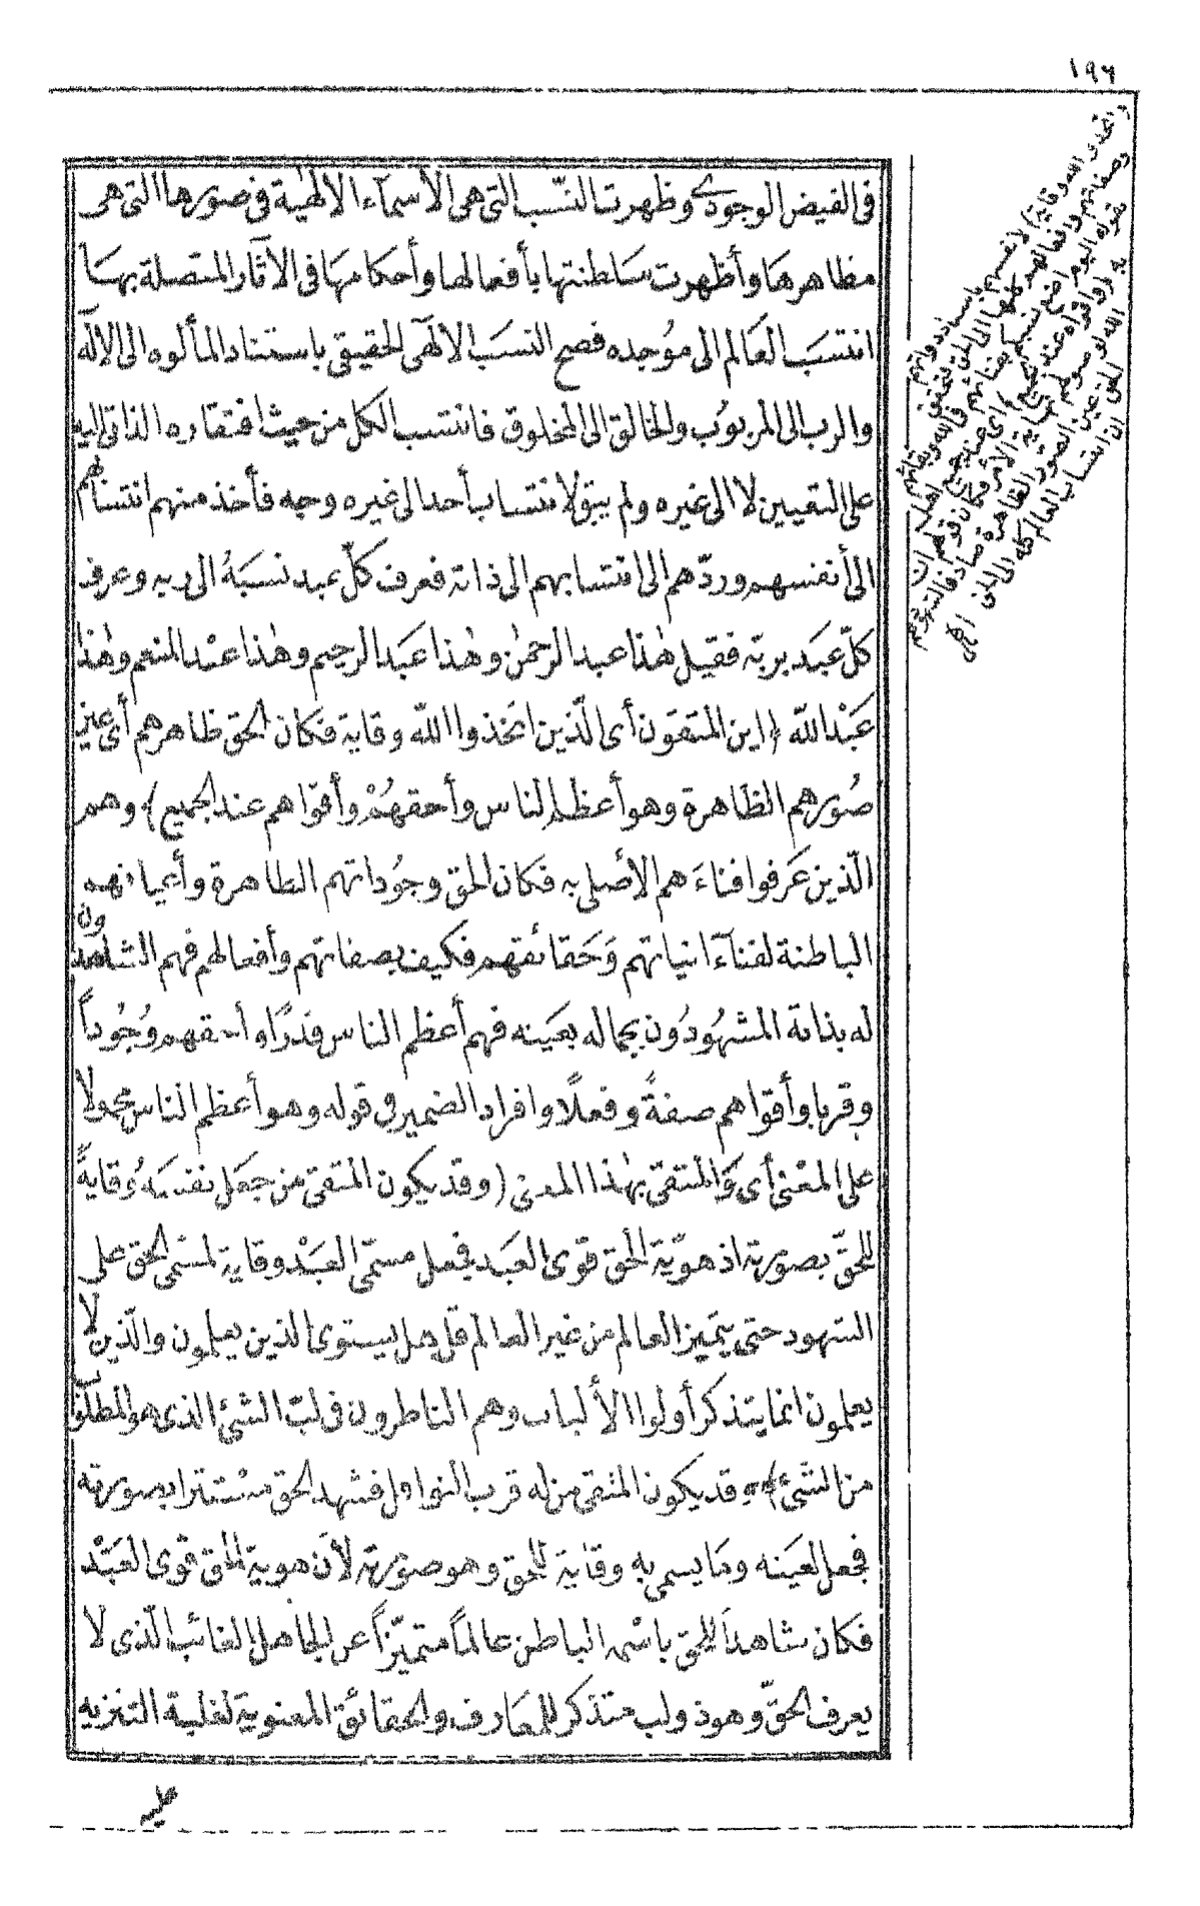 ١٩٦
فى الفيض الوجودى وظهرت النّسب التى هى الأسمآء الالهٰية فى صورها التى هى
مظاهرها وأظهرت سلطنتها بأفعالها وأحكامها فى الآثار المتصلة بها
انتسب العالم الى موجده فصح النسب الالٰهى الحقيقى باستناد المألوه الى الإلٓه
والرب الى المربوب والخالق الى المخلوق فانتسب الكل من حيث افتقاره الذاتى اليه
على التعيين لا الى غيره ولم يبق لانتساب أحد الى غيره وجه فأخذ منهم انتسابهم
الى أنفسهم وردّهم الى انتسابهم الى ذاته فعرف كلّ عبد نسبَهُ الى ربه وعرف
كلّ عبد بربّه فقيل هٰذا عبد الرحمٰن وهٰذا عبد الرحيم وهٰذا عبْد المنعم وهٰذا
عبْد اللّه (اين المتقون أى الّذين اتخذوا اللّه وقاية فكان الحق ظاهرهم أى عين
صُورهم الظاهرة وهو أعظم الناس وأحقهُمْ وأقوٰاهم عند الجميع) وهم
الّذين عرفوا فناءَهم الأصلى به فكان الحق وجُوداتهم الظاهرة وأعيانهم
الباطنة لفنآء انياتهم وَحَقائقهم فكيف بصفاتهم وأفعالهم فهم الشاهدون
له بذاته المشهُودُون بجماله بعينه فهم أعظم الناس قدرًا وأحقهم وجُوداً
وقربا وأقواهم صفةً وفعلًا وافراد الضمير فى قوله وهو أعظم الناس محمولا
على المعْنى أى وَالمتقى بهٰذا المعنى (وقد يكون المتقى من جعل نفسَه وُقايةً
للحقّ بصورته اذ هويّة الحق قوى العبد فجعل مسمّى العبْد وقاية لمسمى الحق على
الشهود حتى يتميز العالم من غير العالم قل هل يستوى الذين يعلمون والّذين لا
يعلمون انما يتذكر أولوا الألباب وهم الناظرون فى لبّ الشئ الذى هو المطلوب
من الشئ) وقد يكون المتقى من له قرب النوافل فشهد الحق مستترا بصورته
فجعل لعينه وما يسمى به وقاية للحق وهو صورته لأن هوية الحق قوى العبْد
فكان شاهداً للحق باسْمه الباطن عالماً متميّزاً عن الجاهل الغائب الّذى لا
يعرف الحقّ وهو ذو لب متذكر للمعارف والحقائق المعنوية لغلبة التنزيه
عليه
(اتخذوا الله وقاية) لأنفسهم باسناد ذواتهم
وصفاتهم وأفعالهم كلها الى الحق